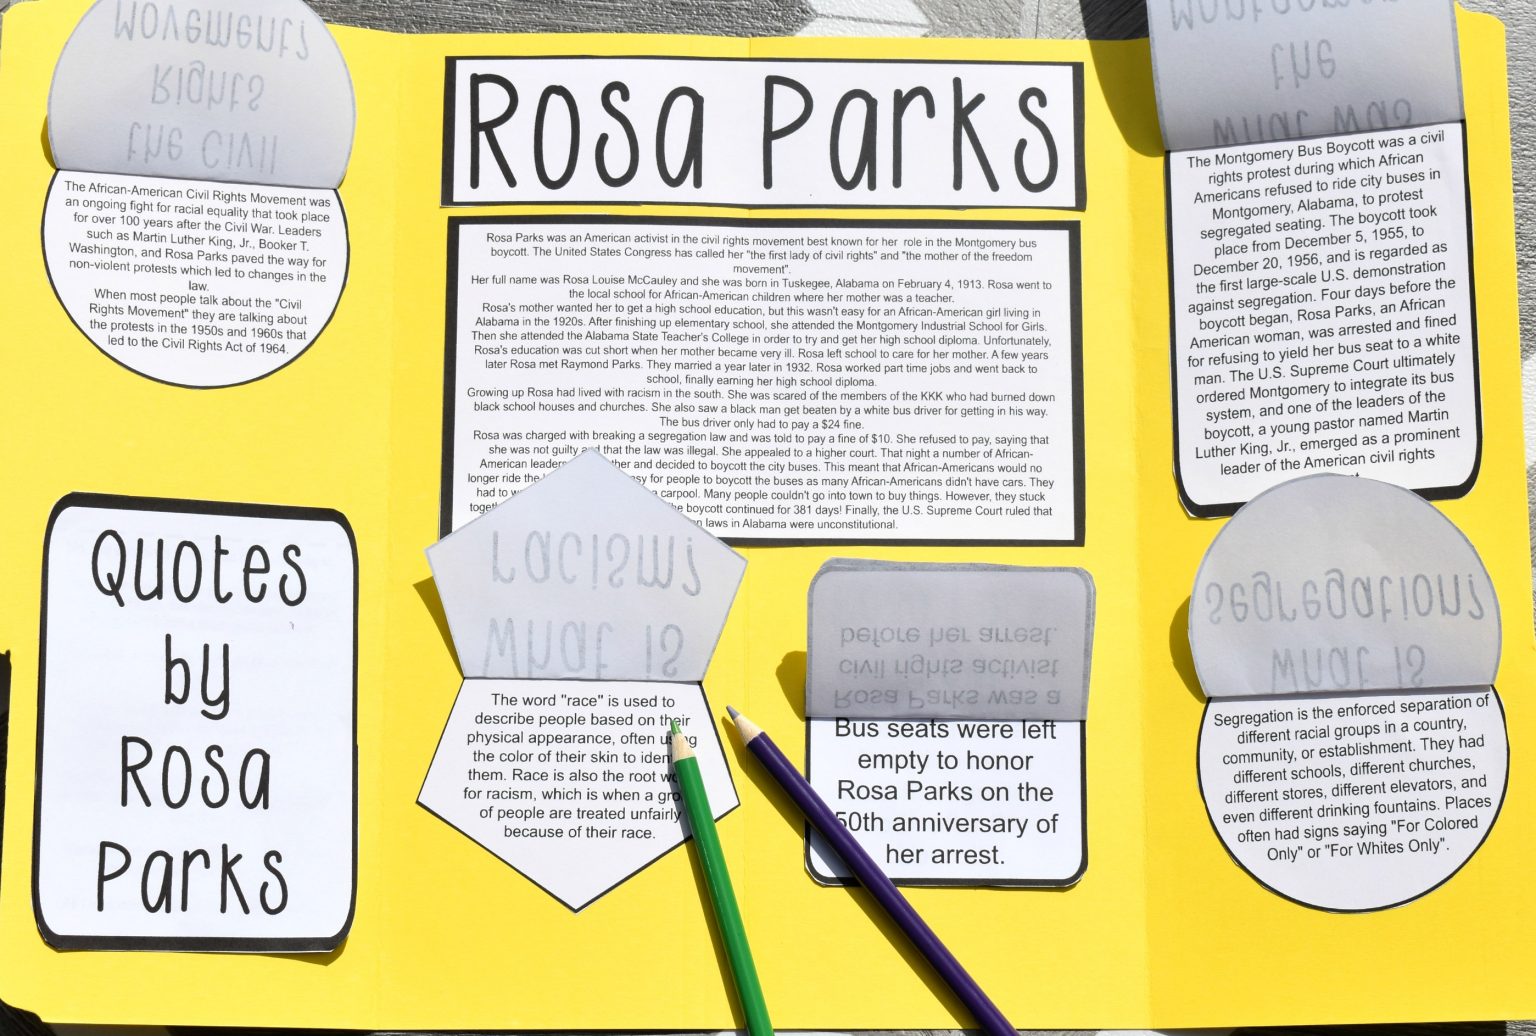 Movement?
Rights
the Civil
The African-American Civil Rights Movement was
an ongoing fight for racial equality that took place
for over 100 years after the Civil War. Leaders
such as Martin Luther King, Jr., Booker T.
Washington, and Rosa Parks paved the way for
non-violent protests which led to changes in the
law.
When most people talk about the "Civil
Rights Movement" they are talking about
the protests in the 1950s and 1960s that
led to the Civil Rights Act of 1964.
Quotes
by
Rosa
Parks
Rosa Parks
Rosa Parks was an American activist in the civil rights movement best known for her role in the Montgomery bus
boycott. The United States Congress has called her "the first lady of civil rights" and "the mother of the freedom
movement".
Her full name was Rosa Louise McCauley and she was born in Tuskegee, Alabama on February 4, 1913. Rosa went to
the local school for African-American children where her mother was a teacher.
Rosa's mother wanted her to get a high school education, but this wasn't easy for an African-American girl living in
Alabama in the 1920s. After finishing up elementary school, she attended the Montgomery Industrial School for Girls.
Then she attended the Alabama State Teacher's College in order to try and get her high school diploma. Unfortunately,
Rosa's education was cut short when her mother became very ill. Rosa left school to care for her mother. A few years
later Rosa met Raymond Parks. They married a year later in 1932. Rosa worked part time jobs and went back to
school, finally earning her high school diploma.
Growing up Rosa had lived with racism in the south. She was scared of the members of the KKK who had burned down
black school houses and churches. She also saw a black man get beaten by a white bus driver for getting in his way.
The bus driver only had to pay a $24 fine.
Rosa was charged with breaking a segregation law and was told to pay a fine of $10. She refused to pay, saying that
she was not guilty and that the law was illegal. She appealed to a higher court. That night a number of African-
American leaders and decided to boycott the city buses. This meant that African-Americans would no
longer ride the for people to boycott the buses as many African-Americans didn't have cars. They
had to a carpool. Many people couldn't go into town to buy things. However, they stuck
boycott continued for 381 days! Finally, the U.S. Supreme Court ruled that
laws in Alabama were unconstitutional.
racism?
What is
The word "race" is used to
describe people based on their
physical appearance, often using
the color of their skin to
them. Race is also the root
for racism, which is when a
of people are treated unfairly
because of their race.
before her arrest.
civil rights activist
Rosa Parks was a
Bus seats were left
empty to honor
Rosa Parks on the
50th anniversary of
her arrest.
the
What was
The Montgomery Bus Boycott was a civil
rights protest during which African
Americans refused to ride city buses in
Montgomery, Alabama, to protest
segregated seating. The boycott took
place from December 5, 1955, to
December 20, 1956, and is regarded as
the first large-scale U.S. demonstration
against segregation. Four days before the
boycott began, Rosa Parks, an African
American woman, was arrested and fined
for refusing to yield her bus seat to a white
man. The U.S. Supreme Court ultimately
ordered Montgomery to integrate its bus
system, and one of the leaders of the
boycott, a young pastor named Martin
Luther King, Jr., emerged as a prominent
leader of the American civil rights
Segregation?
What is
Segregation is the enforced separation of
different racial groups in a country,
community, or establishment. They had
different schools, different churches,
different stores, different elevators, and
even different drinking fountains. Places
often had signs saying "For Colored
Only" or "For Whites Only".